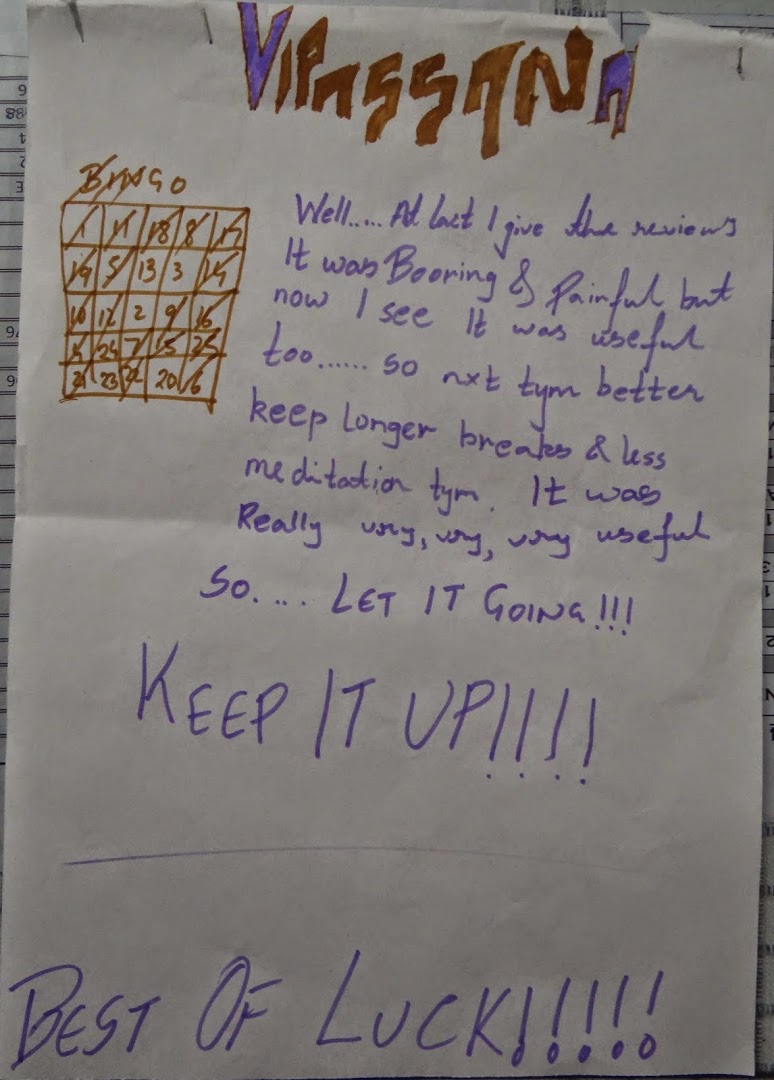 VIPASSANA
BINGO
1 11 18 8 17
19 5 13 3 14
10 12 2 9 16
24 7 15 25
21 23 22 20 6
Well..... At last I give the reviews
It was Booring & Painful but
now I see It was useful
too...... so nxt tym better
keep longer breaks & less
meditation tym. It was
Really vry, vry, vry useful
So.... LET IT GOING!!!
KEEP IT UP!!!!
BEST OF LUCK!!!!!